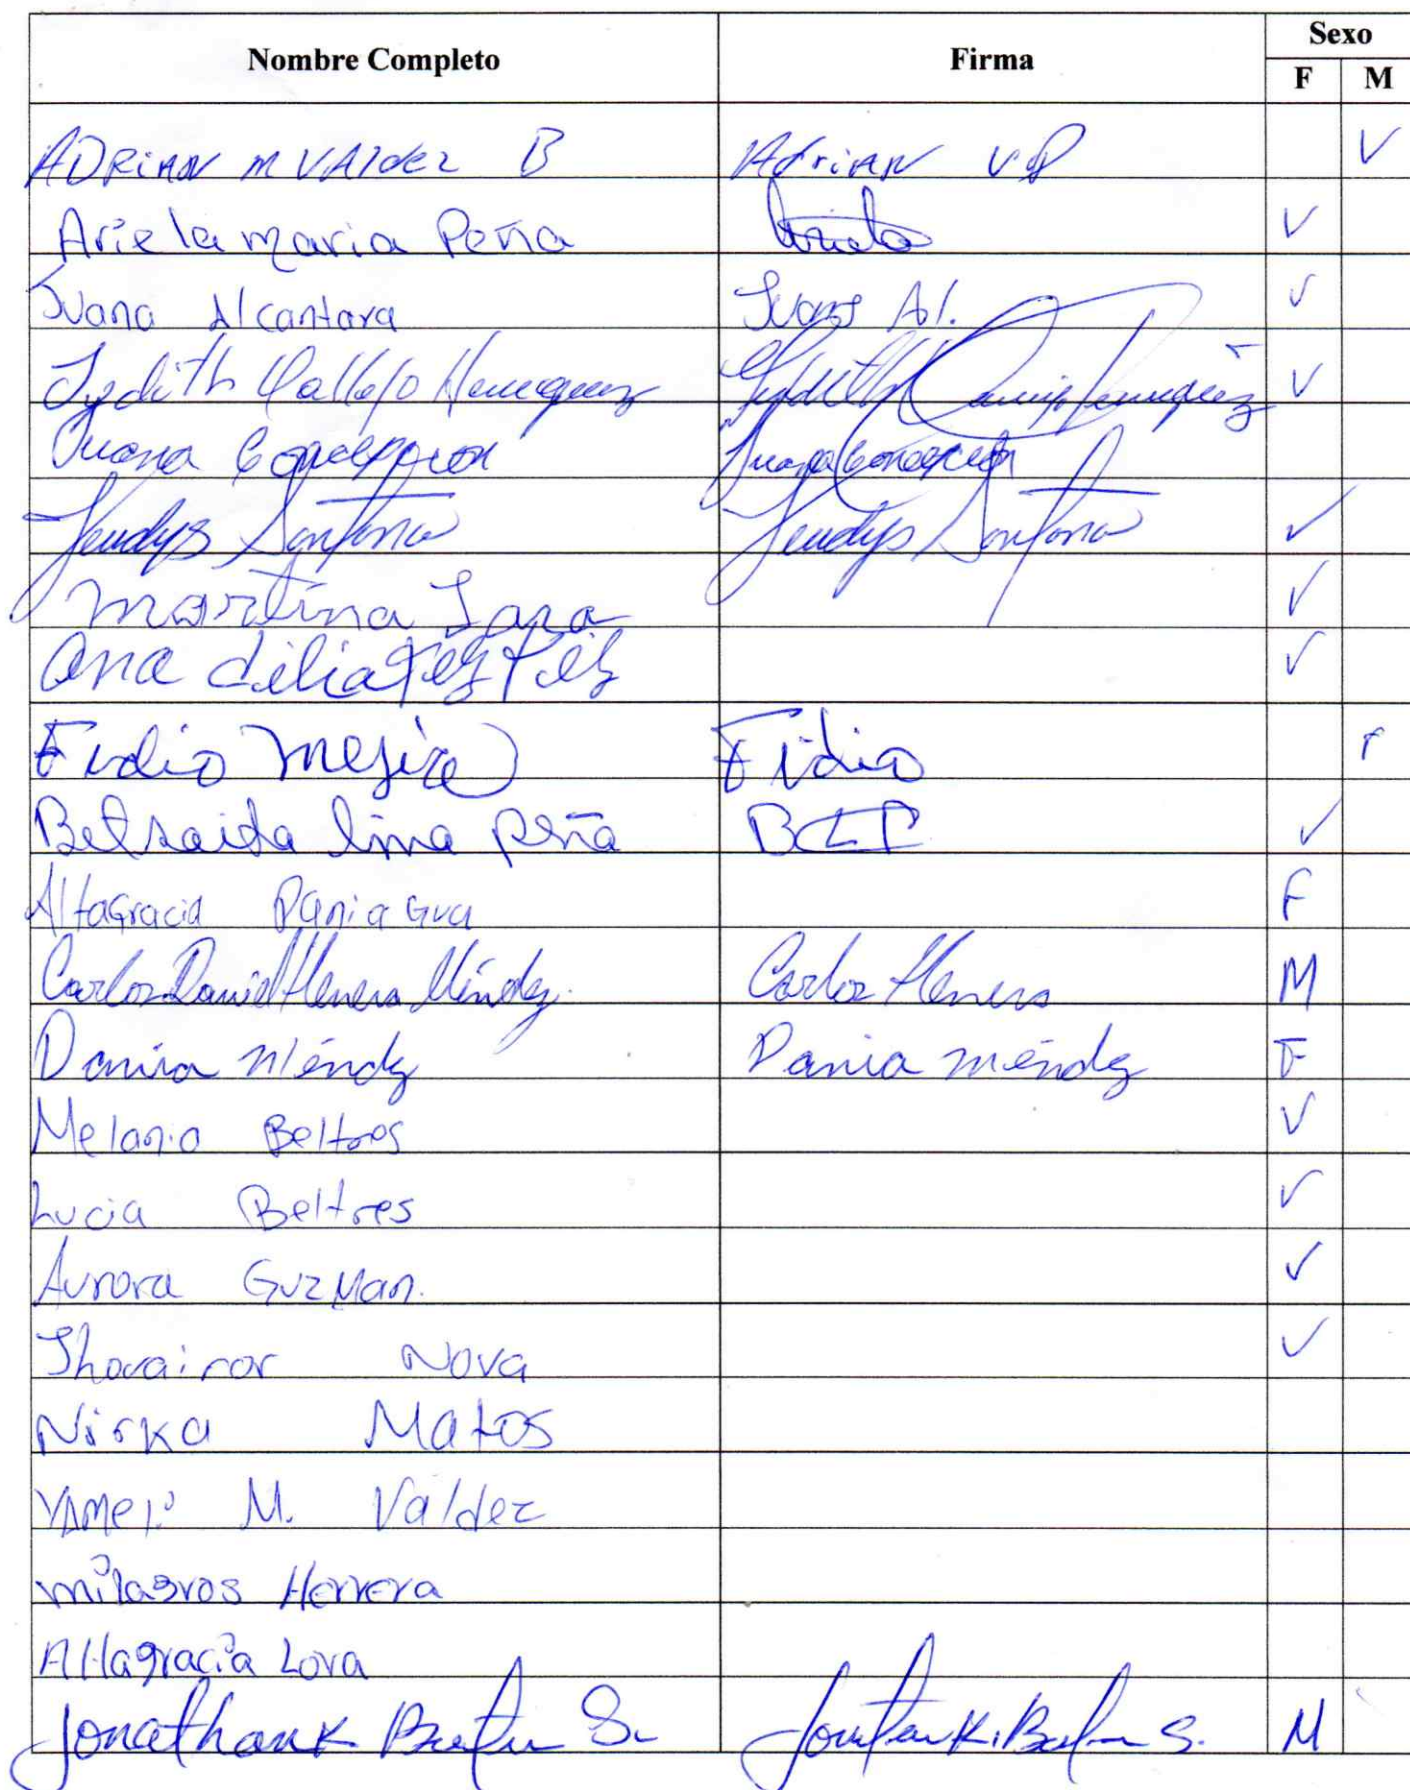 Nombre Completo Firma Sexo
F M
ADRIAN M VAldez B Adrian V B V
Ariela maria Peña Ariela V
Juana Alcantara Juana Al. V
Judith Vallejo Henriquez Judith V
Juana Concepcion Juana Concepcion
Yeudys Santana Yeudys Santana ✓
Martina Jara V
Ana dilia V
Fidio Mejia Fidio
Betsaida lina Peña BLP ✓
Altagracia Paniagua F
Carlos Daniel Herrera Méndez. Carlos Herrera M
Dania Méndez Dania Méndez F
Melania Beltres V
Lucia Beltres V
Aurora Guzman. V
Nova V
Nirka Matos
Yameli M. Valdez
milagros Herrera
Altagracia Lora
Jonathan K S. K. S. M